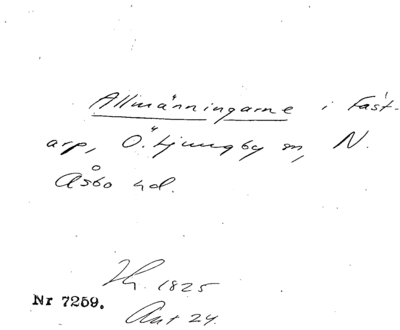 Allmänningarne i Fast-
arp, Ö. Ljungby sn, N.
Åsbo hd.
1825
Nr 7259.
Ant 24.